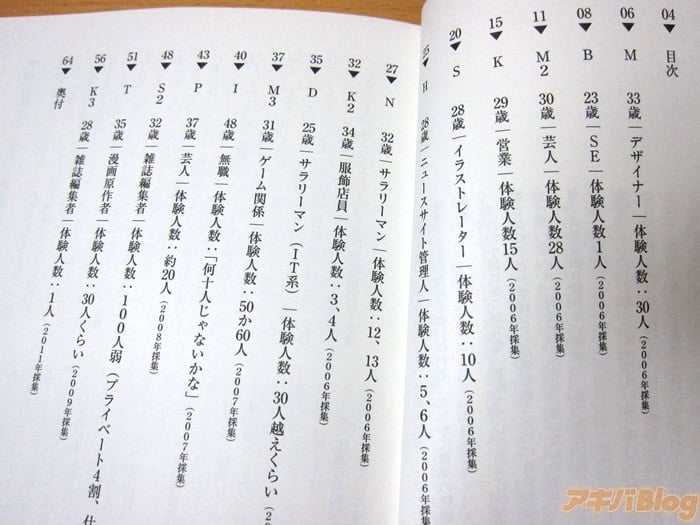 04▼目次
06▼M 33歳｜デザイナー｜体験人数：30人（2006年採集）
08▼B 23歳｜SE｜体験人数1人（2006年採集）
11▼M2 30歳｜芸人｜体験人数28人（2006年採集）
15▼K 29歳｜営業｜体験人数15人（2006年採集）
20▼S 28歳｜イラストレーター｜体験人数：10人（2006年採集）
25▼H 28歳｜ニュースサイト管理人｜体験人数：5、6人（2006年採集）
27▼N 32歳｜サラリーマン｜体験人数：12、13人（2006年採集）
32▼K2 34歳｜服飾店員｜体験人数：3、4人（2006年採集）
35▼D 25歳｜サラリーマン（IT系）｜体験人数：30人越えくらい（2006年採集）
37▼M3 31歳｜ゲーム関係｜体験人数：50か60人（2007年採集）
40▼I 48歳｜無職｜体験人数：「何十人じゃないかな」（2007年採集）
43▼P 37歳｜芸人｜体験人数：約20人（2008年採集）
48▼S2 32歳｜雑誌編集者｜体験人数：100人弱（プライベート4割、仕
51▼T 35歳｜漫画原作者｜体験人数：30人くらい（2009年採集）
56▼K3 28歳｜雑誌編集者｜体験人数：1人（2011年採集）
64▼奥付
アキバBlog